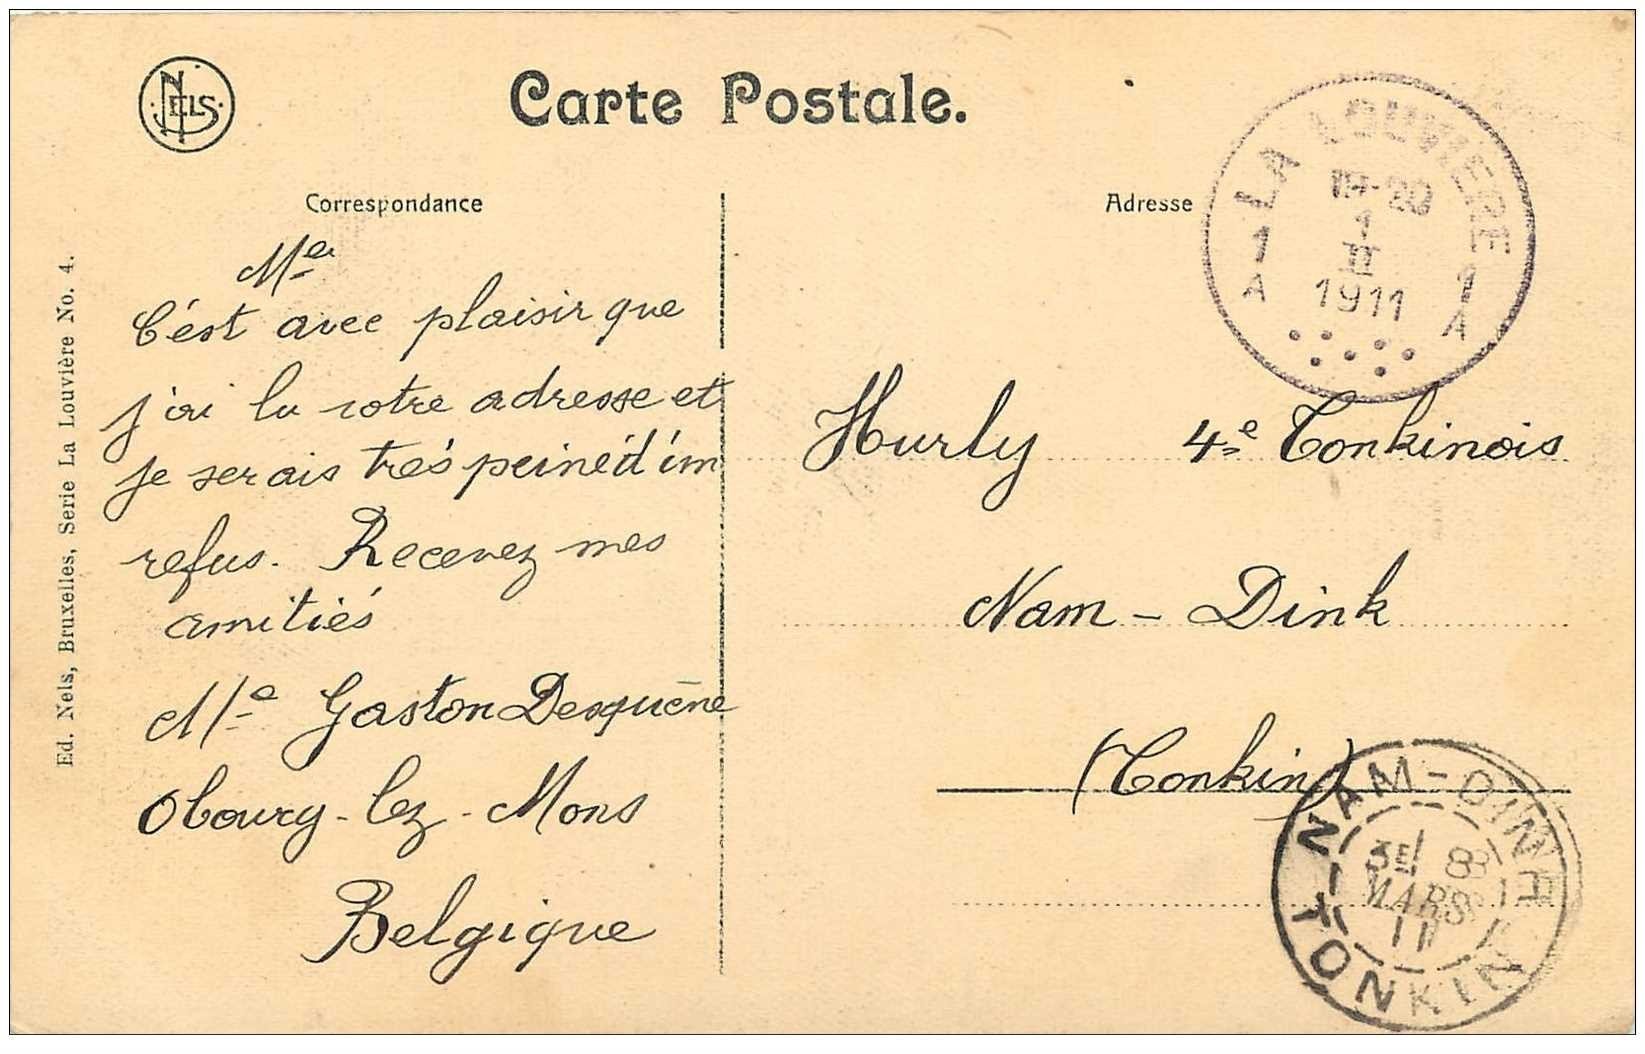 NELS
Carte Postale.
Correspondance
Adresse
LA LOUVIERE
19-20
1
II
1911
1 A
1 A
Ed. Nels, Bruxelles, Serie La Louvière No. 4.
Me
C'est avec plaisir que
j'ai lu votre adresse et
je serais très peiné d'im
refus. Recevez mes
amitiés
Me Gaston Desquène
Obourg-lez-Mons
Belgique
Hurly 4e Tonkinois
Nam-Dink
(Tonkin)
NAM-DINH
3E 8
MARS
11
TONKIN